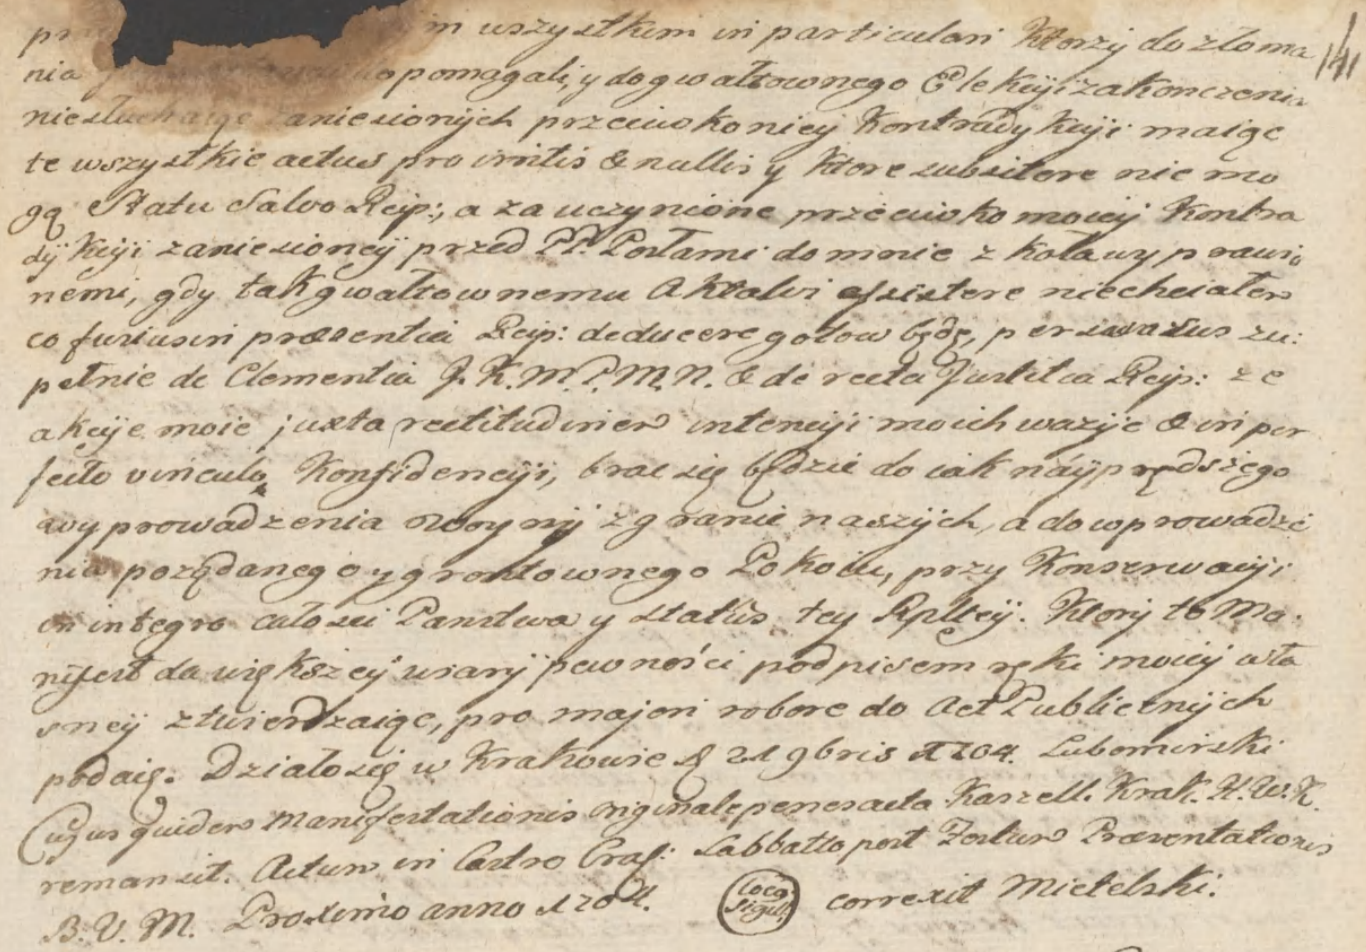 m wszystkim in particulari Ktorzy do złoma 141
nia pomagali, y do gwałtownego Elekcyi zakonczenia
niesłuchaiąc zaniesionych przeciwko niey Kontradykcyi maiąc
te wszystkie actus pro irritis & nullis y ktore subsistere nie mo
gą Statu Salvo Reip:, a za uczynione przeciwko moiey Kontra
dykcyi zaniesioney przed PP. Posłami do mnie z koła wyprawio
nemi, gdy tak gwałtownemu Aktowi assistere niechciałem
co fusius in præsentia Reip: deducere gotow będę, persuasus zu:
pełnie de Clementia J. K. M. P. M. N. & de recta Justitia Reip: ze
akcyje moie juxta rectitudinem intencyi moich wazyc & in per
fecto vinculo Konfidencyi, brac się będzie do iak nayprędszego
wyprowadzenia woyny z granic naszych, a do wprowadze
nia pożądanego y grontownego Pokoiu, przy Konserwacyi
in integro całosci Panstwa y status tey Rpltey. Ktory to Ma
nifest dla większey wiary pewności podpisem ręki moiey wła
sney ztwierdzaiąc, pro majori robore do Act Publicznych
podaię. Działo się w Krakowie d 21 9bris 1704. Lubomirski
Cujus quidem Manifestationis originale penes acta Kaszell. Krak. H. W. K.
remansit. Actum in Castro Crac: Sabbatto post Festum Præsentationis
B. V. M. Proximo anno 1704. Loco Sigilli correxit Mietelski.